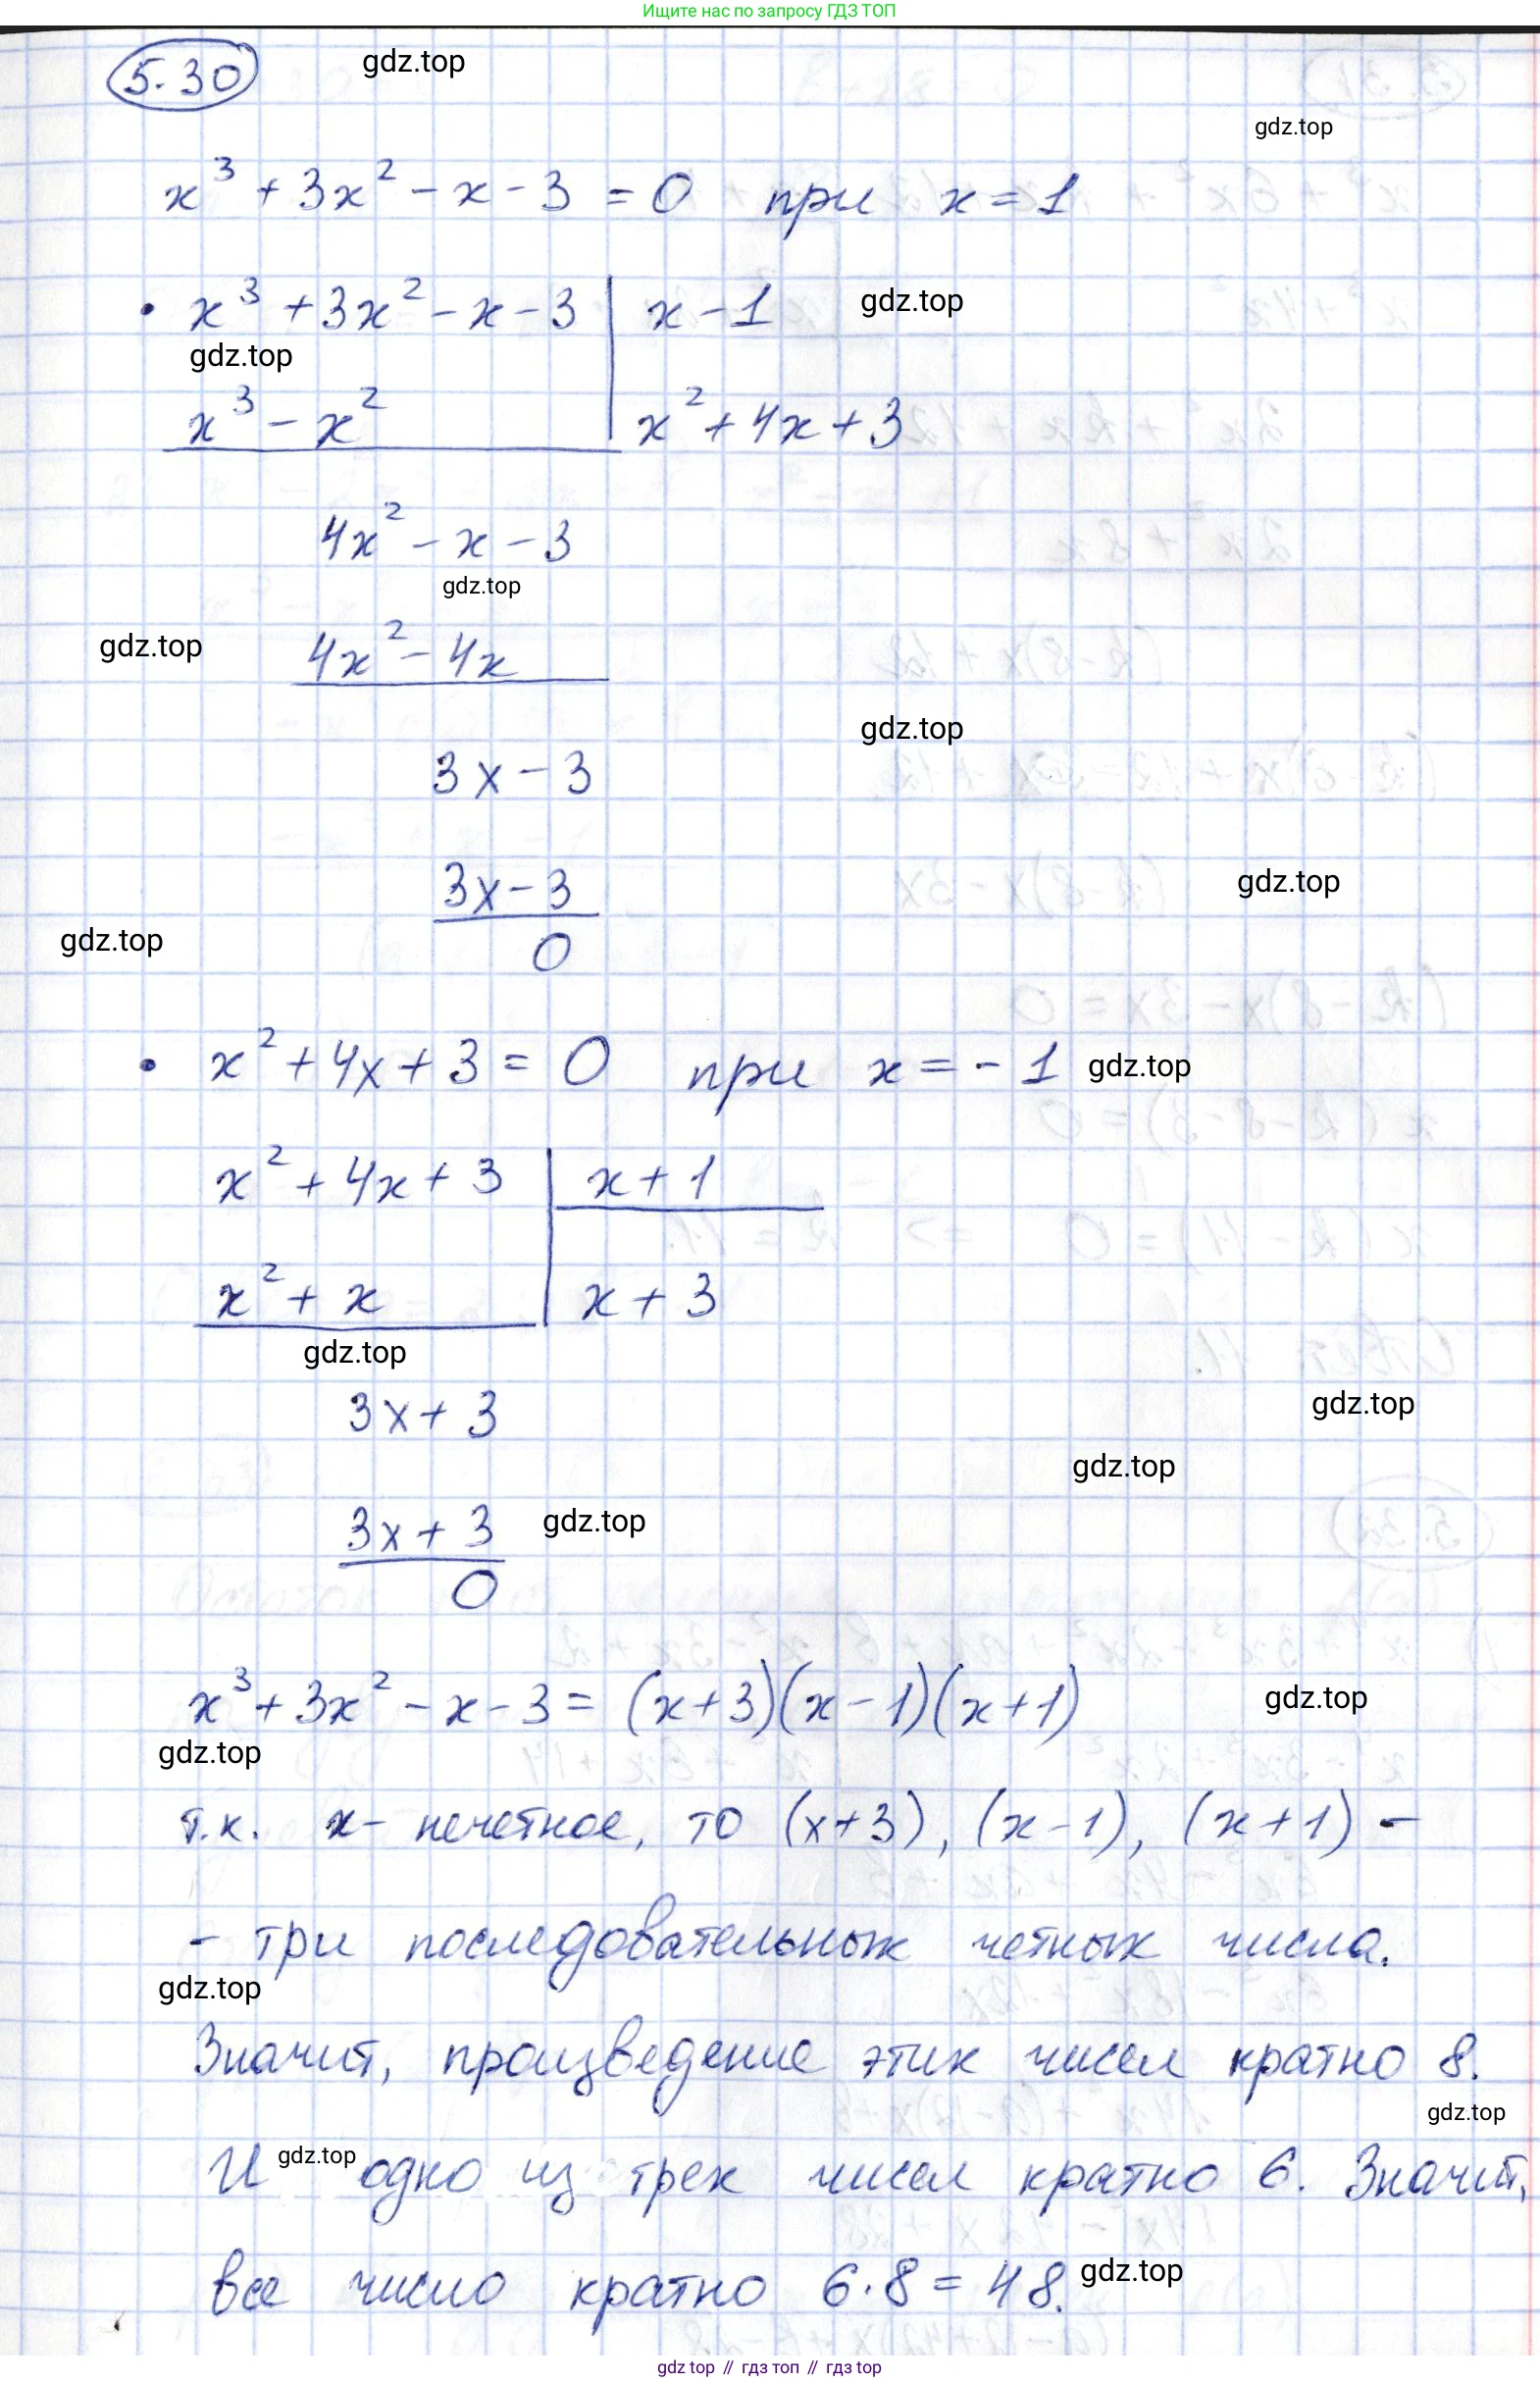 Ищите нас по запросу ГДЗ ТОП
5.30 gdz.top
gdz.top
x³ + 3x² - x - 3 = 0 при x = 1
• x³ + 3x² - x - 3 | x - 1 gdz.top
gdz.top
x³ - x² | x² + 4x + 3
4x² - x - 3
gdz.top
gdz.top 4x² - 4x
gdz.top
3x - 3
3x - 3 gdz.top
gdz.top 0
• x² + 4x + 3 = 0 при x = - 1 gdz.top
x² + 4x + 3 | x + 1
x² + x | x + 3
gdz.top
3x + 3 gdz.top
gdz.top
3x + 3 gdz.top
0
x³ + 3x² - x - 3 = (x+3)(x-1)(x+1) gdz.top
gdz.top
т.к. x - нечетное, то (x+3), (x-1), (x+1) -
- три последовательных четных числа.
gdz.top
Значит, произведение этих чисел кратно 8.
gdz.top
И gdz.top одно из трех чисел кратно 6. Значит,
все число кратно 6·8 = 48. gdz.top
gdz top // гдз топ // гдз top